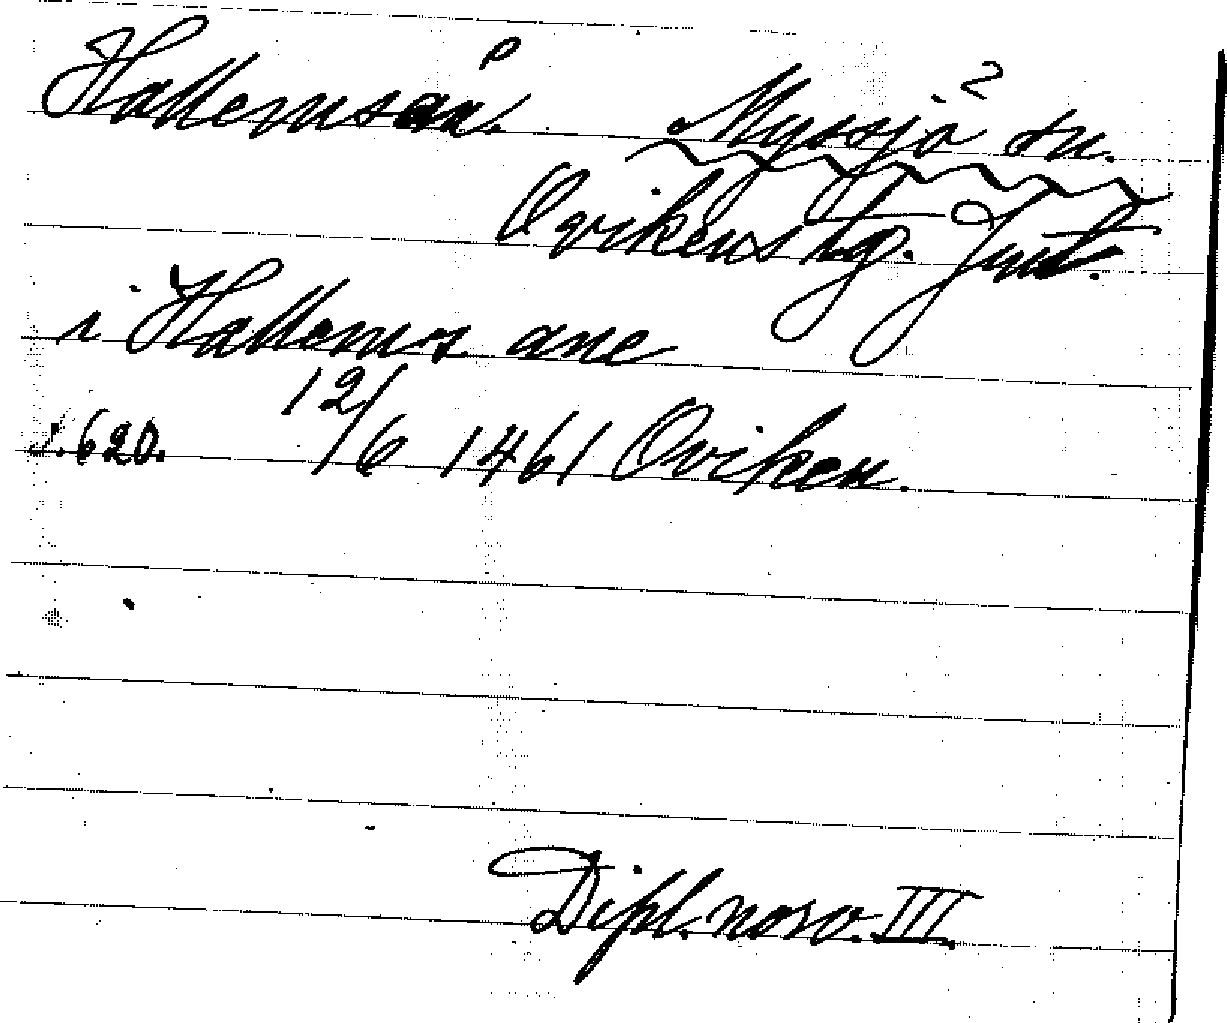 Hallemsån. Myssjö sn.
Ovikens tg. Jmt.
i Hallems ane
s. 620. 12/6 1461 Oviken.
Dipl. norv. III